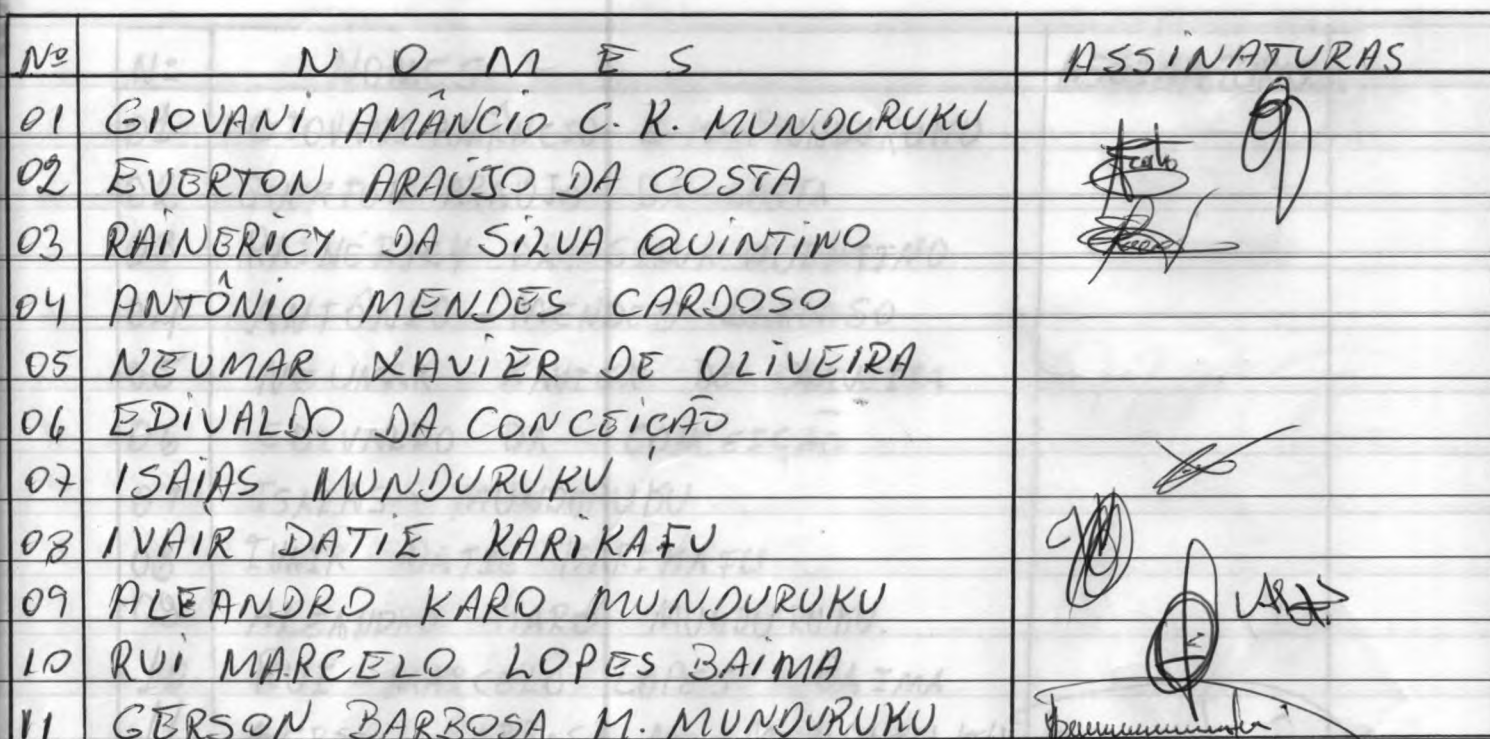 Nº NOMES ASSINATURAS
01 GIOVANI AMÂNCIO C. R. MUNDURUKU
02 EVERTON ARAÚJO DA COSTA
03 RAINERICY DA SILVA QUINTINO
04 ANTÔNIO MENDES CARDOSO
05 NEUMAR XAVIER DE OLIVEIRA
06 EDIVALDO DA CONCEIÇÃO
07 ISAÍAS MUNDURUKU
08 IVAIR DATIE KARIKAFU
09 ALEANDRO KARO MUNDURUKU
10 RUI MARCELO LOPES BAIMA
11 GERSON BARBOSA M. MUNDURUKU